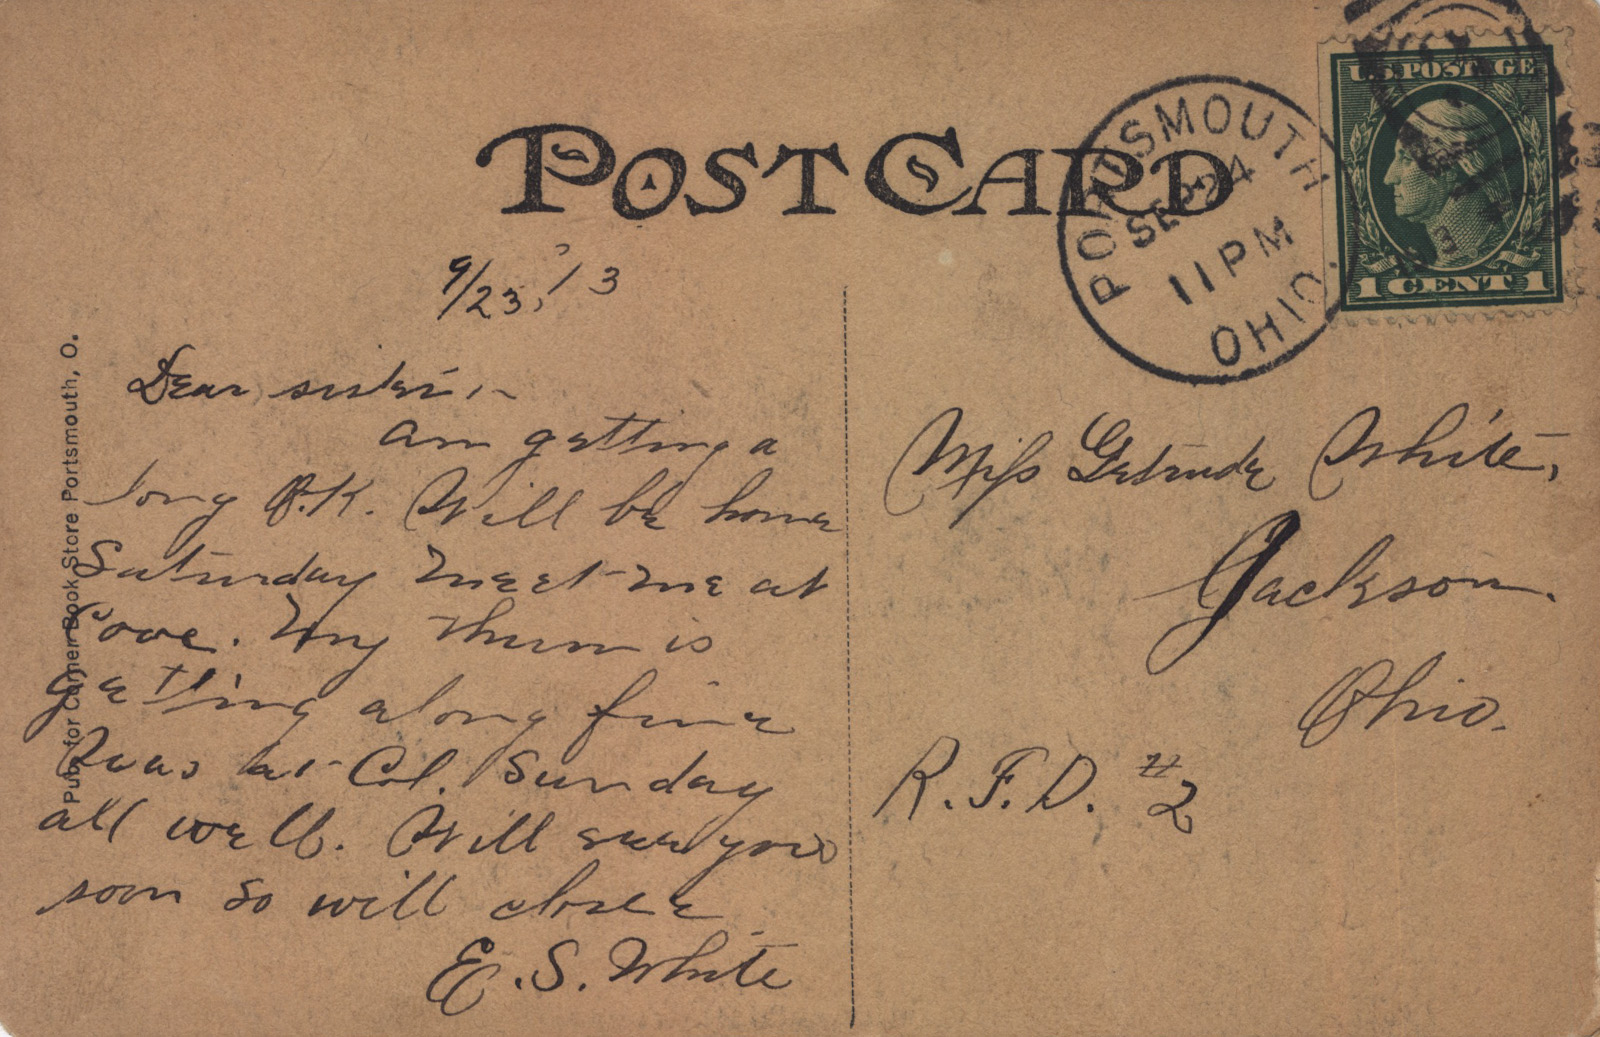 POSTCARD
PORTSMOUTH
SEP 24
11 PM
OHIO.
U.S. POSTAGE
1 CENT 1
Pub. for Corner Book Store Portsmouth, O.
9/23, '13
Dear sister,-
am getting a
long O.K. Will be home
Saturday meet me at
Cove. My thum is
getting along fine
I was at Col. Sunday
all well. Will see you
soon so will close
E. S. White
Miss Gertrude White,
Jackson.
Ohio.
R. F. D. #2